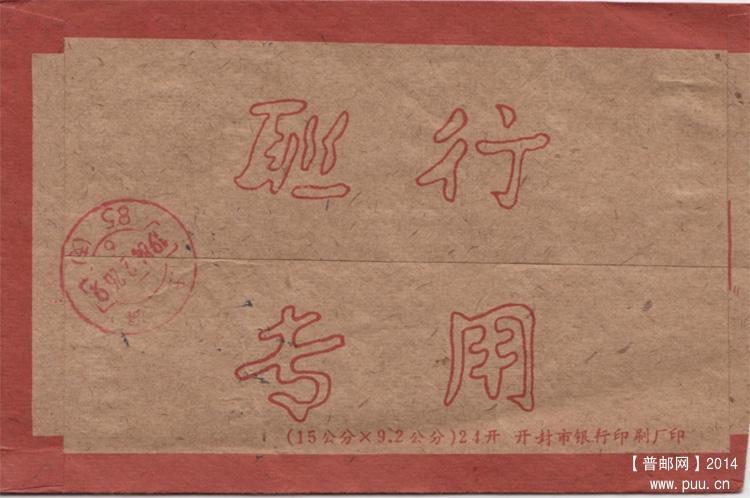 联行
专用
85
(15公分×9.2公分)24开 开封市银行印刷厂印
【普邮网】2014
www.puu.cn